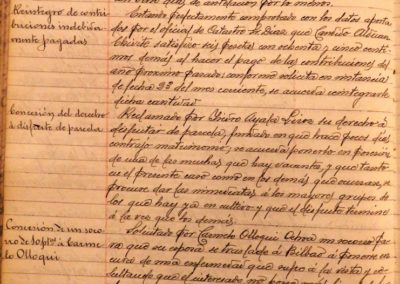 Reintegro de contri-
buciones indebida-
mente pagadas
Estando perfectamente comprobado con los datos aporta-
dos por el oficial de Catastro de que Cándido
satisfizo seis pesetas con ochenta y cinco cénti-
mos demás al hacer el pago de las contribuciones del
año próximo pasado conforme solicita en instancia
de fecha 22 del mes corriente, se acuerda reintegrarle
dicha cantidad.
Concesión del derecho
a disfrute de parcela
Reclamado por Isidro Ayala su derecho a
disfrutar de parcela, fundado en que hace pocos días
contrajo matrimonio, se acuerda ponerlo en posesión
de una de las muchas que hay vacantes, y que tanto
en el presente caso como en los demás que ocurran, se
procure dar las inmediatas a los mayores grupos de
los que hay ya en cultivo y que el disfrute termine
a la vez que los demás.
Concesión de un soco-
rro de 50 ptas. a Carme-
lo Olloqui
Solicitado por Carmelo Olloqui Ochoa un socorro pa-
ra que su esposa se traslade a Bilbao a ponerse en
cura de una enfermedad que sufre a la vista y re-
sultando que el interesado